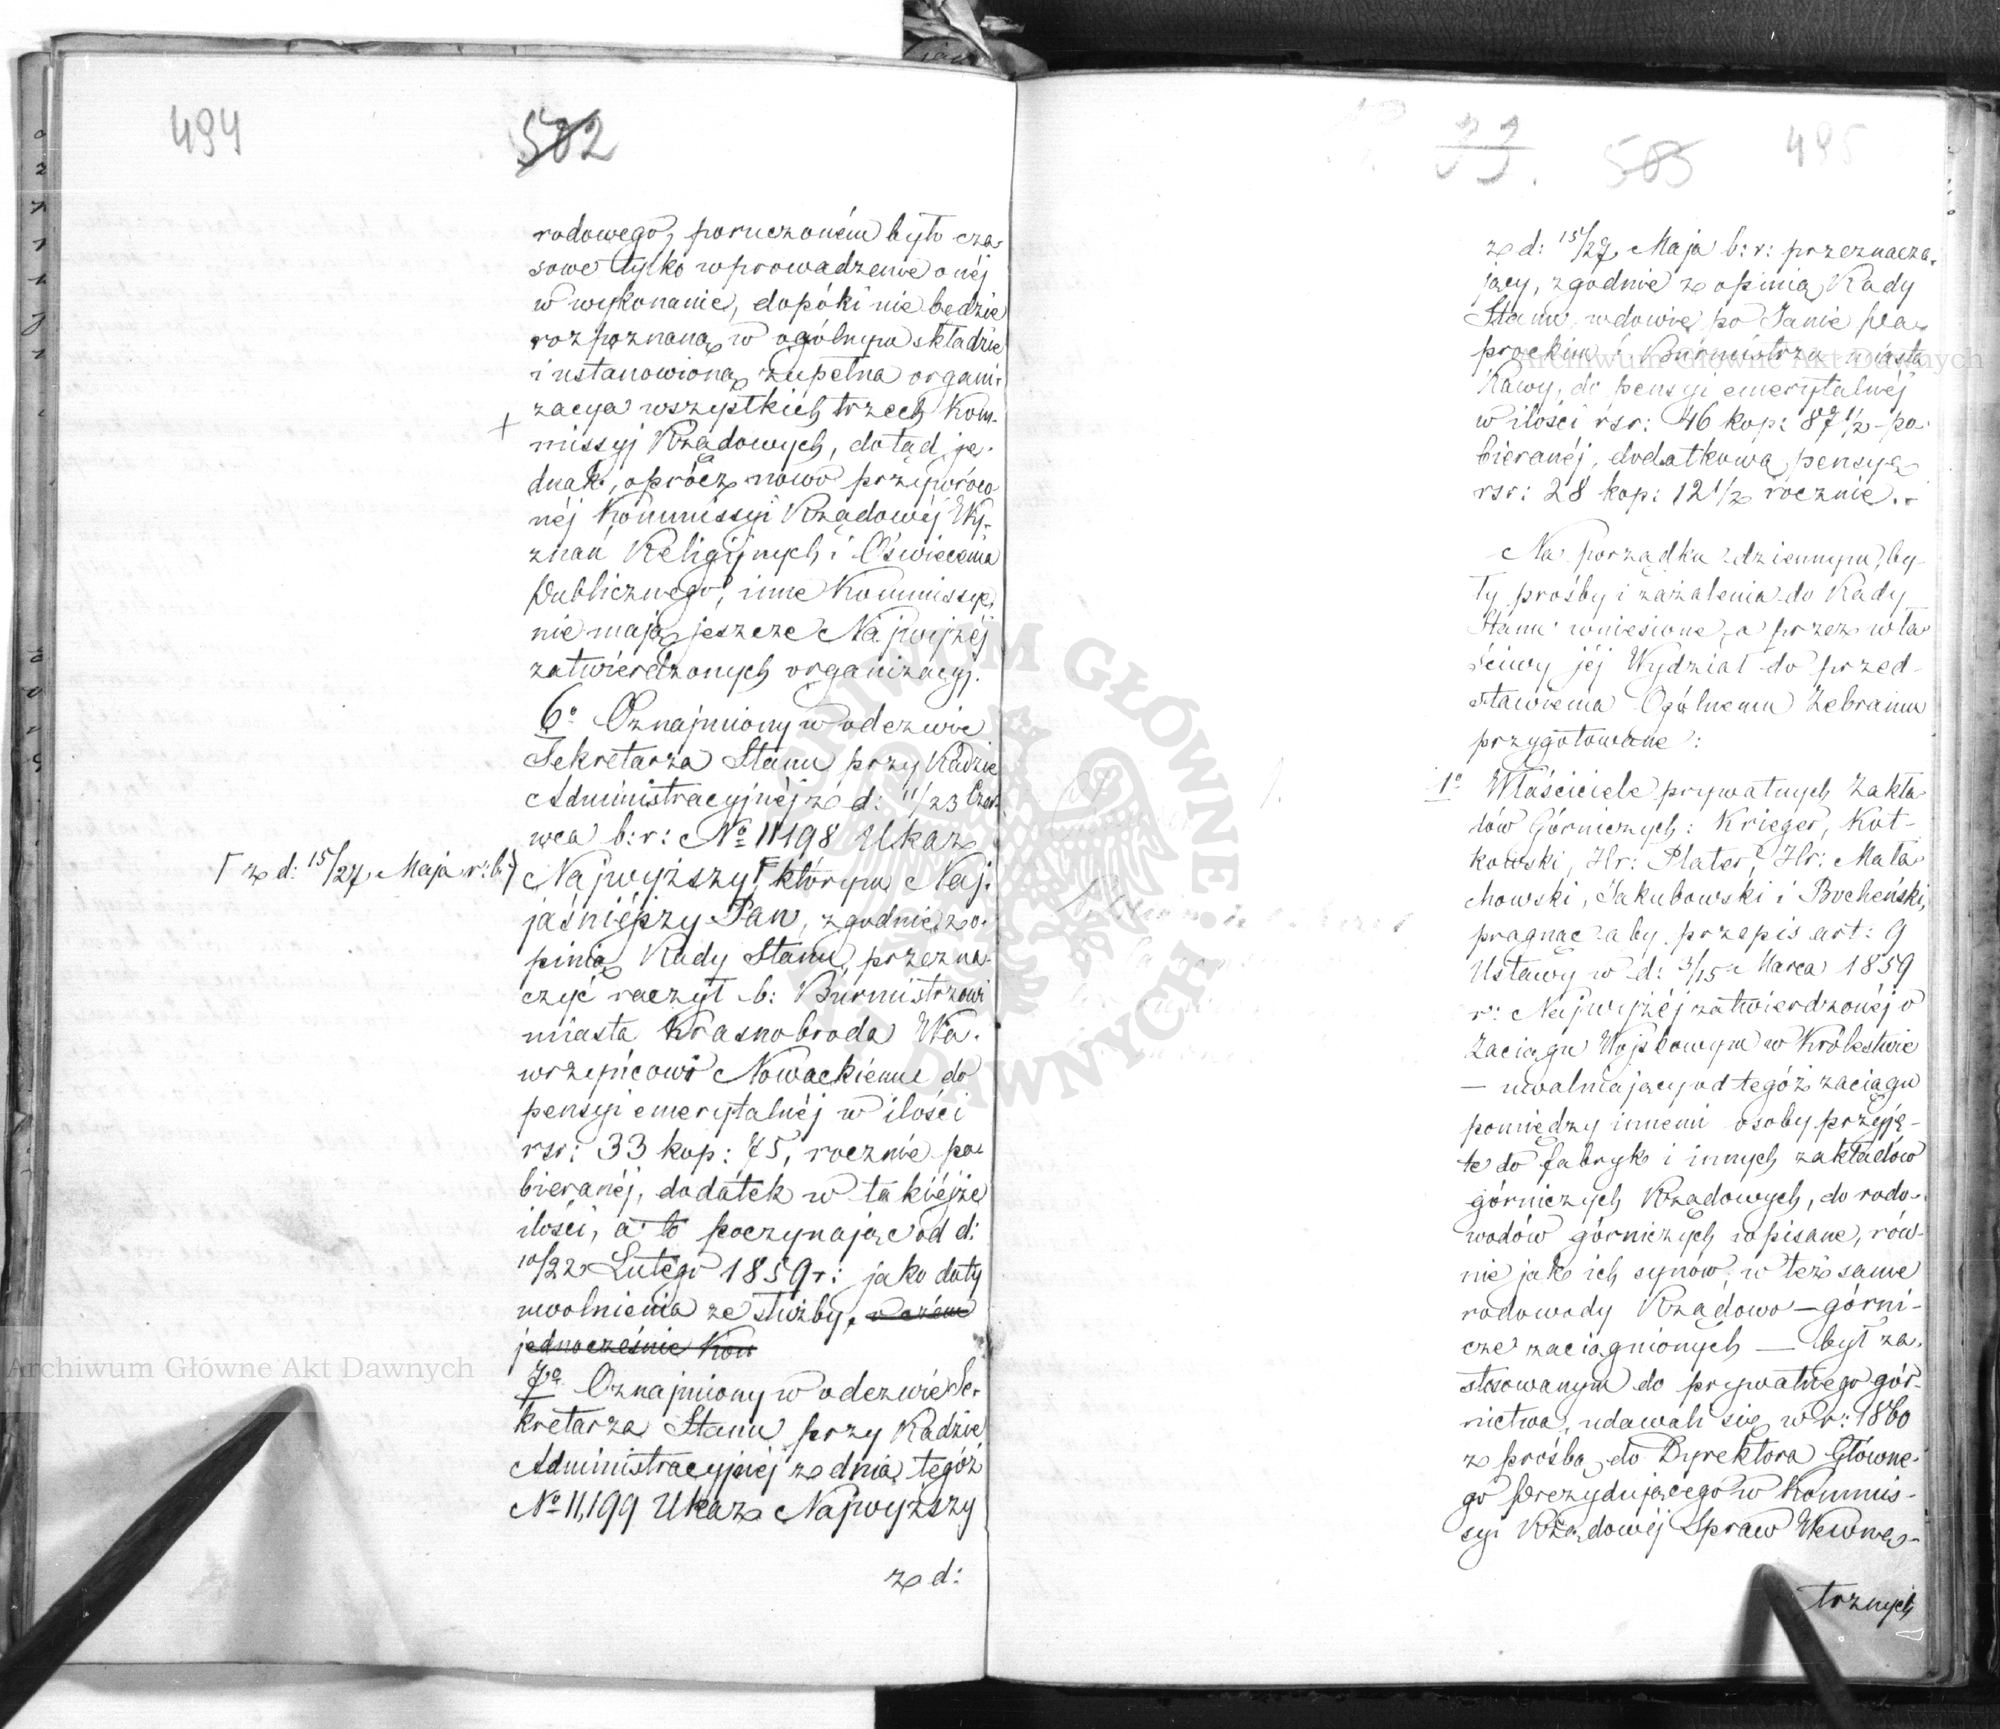 494
502
rodowego, poruczoném było cza-
sowe tylko wprowadzenie onéj
w wykonanie, dopóki nie będzie
rozpoznaną w ogólnym składzie
i ustanowioną zupełna organi-
zacya wszystkich trzech Kom-
+ missyj Rządowych, dotąd je-
dnak, oprócz nowo przywróco
néj Kommissyi Rządowéj Wy-
znań Religijnych i Oświecenia
Publicznego, inne Kommissye,
nie mają jeszcze Najwyżéj
zatwierdzonych organizacyj.
6º Oznajmiony w odezwie
Sekretarza Stanu przy Radzie
Administracyjnéj z d: 11/23 Czer-
wca b: r: Nº 11198 Ukaz
Γ z d: 15/27 Maja r: b:
Najwyższy Γ którym Naj-
jaśniéjszy Pan, zgodnie z o-
pinią Rady Stanu, przezna-
czyć raczył b: Burmistrzowi
miasta Krasnobroda Wa-
wrzyńcowi Nowackiému do
pensyi emerytalnéj w ilości
rsr: 33 kop: 75, rocznie po-
bieranéj, dodatek w takiéjże
ilości, a to poczynając od d:
10/22 Lutego 1859 r: jako daty
uwolnienia ze służby,
jednocześnie Kom
7º Oznajmiony w odezwie Se-
kretarza Stanu przy Radzie
Administracyjnéj z dnia tegóż
Nº 11,199 Ukaz Najwyższy
z d:
33.
503
495
z d: 15/27 Maja b: r: przeznacza-
jący, zgodnie z opinią Rady
Stanu, wdowie po Janie Pa-
prockim i Burmistrzu miasta
Rawy, do pensyi emerytalnéj
w ilości rsr: 46 kop: 87 1/2 po-
bieranéj, dodatkową pensyą
rsr: 28 kop: 12 1/2 rocznie.
Na porządku dziennym by-
ły prośby i zażalenia do Rady
Stanu wniesione, a przez wła-
ściwy jéj Wydział do przed-
stawienia Ogólnemu Zebraniu
przygotowane:
1º Właściciele prywatnych Zakła-
dów Górniczych: Krieger, Kot-
kowski, Hr: Plater, Hr: Mała-
chowski, Jakubowski i Bocheński,
pragnąc aby przepis art: 9
Ustawy w d: 3/15 Marca 1859
r: Najwyżéj zatwierdzonéj o
Zaciągu Wojskowym w Królestwie
— uwalniający od tegóż zaciągu
pomiędzy innemi osoby przyję-
te do fabryk i innych zakładów
górniczych Rządowych, do rodo-
wodów górniczych wpisane, rów-
nie jak ich synów, w też same
rodowody Rządowo-górni-
cze zaciągnionych — był za-
stosowanym do prywatnego gór-
nictwa, udawali się w r: 1860
z prośbą do Dyrektora Główne-
go Prezydującego w Kommis-
syi Rządowéj Spraw Wewnę-
trznych
Archiwum Główne Akt Dawnych
Archiwum Główne Akt Dawnych
ARCHIWUM GŁÓWNE AKT DAWNYCH